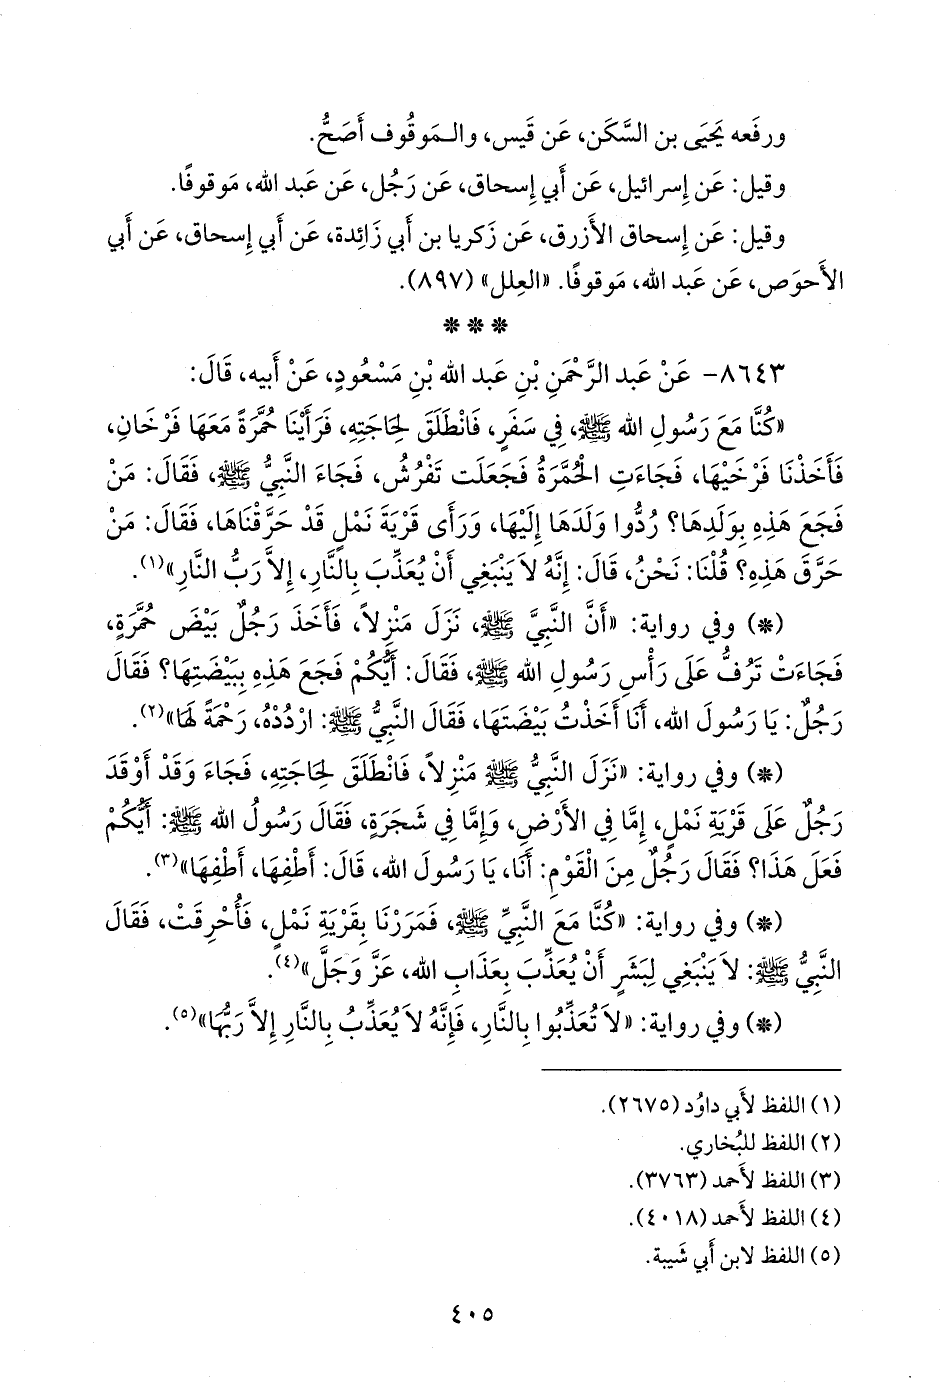 ورفَعه يَحيَى بن السَّكَن، عَن قَيس، والـمَوقُوف أَصَحُّ.
وقيل: عَن إِسرائيل، عَن أَبي إِسحاق، عَن رَجُل، عَن عَبد الله، مَوقوفًا.
وقيل: عَن إِسحاق الأَزرق، عَن زَكريا بن أَبي زَائِدة، عَن أَبي إِسحاق، عَن أَبي
الأَحوَص، عَن عَبد الله، مَوقوفًا. «العِلل» (٨٩٧).
* * *
٨٦٤٣- عَنْ عَبد الرَّحْمَنِ بْنِ عَبد الله بْنِ مَسْعُودٍ، عَنْ أَبيه، قَالَ:
«كُنَّا مَعَ رَسُولِ الله ﷺ، فِي سَفَرٍ، فَانْطَلَقَ لِحَاجَتِهِ، فَرَأَيْنَا حُمَّرَةً مَعَهَا فَرْخَانِ،
فَأَخَذْنَا فَرْخَيْهَا، فَجَاءَتِ الْحُمَّرَةُ فَجَعَلَت تَفْرُشُ، فَجَاءَ النَّبِيُّ ﷺ، فَقَالَ: مَنْ
فَجَعَ هَذِهِ بِوَلَدِهَا؟ رُدُّوا وَلَدَهَا إِلَيْهَا، وَرَأَى قَرْيَةَ نَمْلٍ قَدْ حَرَّقْنَاهَا، فَقَالَ: مَنْ
حَرَّقَ هَذِهِ؟ قُلْنَا: نَحْنُ، قَالَ: إِنَّهُ لاَ يَنْبَغِي أَنْ يُعَذِّبَ بِالنَّارِ، إِلاَّ رَبُّ النَّارِ»(١).
(*) وفي رواية: «أَنَّ النَّبِيَّ ﷺ، نَزَلَ مَنْزِلاً، فَأَخَذَ رَجُلٌ بَيْضَ حُمَّرَةٍ،
فَجَاءَتْ تَرُفُّ عَلَى رَأْسِ رَسُولِ الله ﷺ، فَقَالَ: أَيُّكُمْ فَجَعَ هَذِهِ بِبَيْضَتِهَا؟ فَقَالَ
رَجُلٌ: يَا رَسُولَ الله، أَنَا أَخَذْتُ بَيْضَتَهَا، فَقَالَ النَّبِيُّ ﷺ: ارْدُدْهُ، رَحْمَةً لَهَا»(٢).
(*) وفي رواية: «نَزَلَ النَّبِيُّ ﷺ مَنْزِلاً، فَانْطَلَقَ لِحَاجَتِهِ، فَجَاءَ وَقَدْ أَوْقَدَ
رَجُلٌ عَلَى قَرْيَةِ نَمْلٍ، إِمَّا فِي الأَرْضِ، وَإِمَّا فِي شَجَرَةٍ، فَقَالَ رَسُولُ الله ﷺ: أَيُّكُمْ
فَعَلَ هَذَا؟ فَقَالَ رَجُلٌ مِنَ الْقَوْمِ: أَنَا، يَا رَسُولَ الله، قَالَ: أَطْفِهَا، أَطْفِهَا»(٣).
(*) وفي رواية: «كُنَّا مَعَ النَّبِيِّ ﷺ، فَمَرَرْنَا بِقَرْيَةِ نَمْلٍ، فَأُحْرِقَتْ، فَقَالَ
النَّبِيُّ ﷺ: لاَ يَنْبَغِي لِبَشَرٍ أَنْ يُعَذِّبَ بِعَذَابِ الله، عَزَّ وَجَلَّ»(٤).
(*) وفي رواية: «لاَ تُعَذِّبُوا بِالنَّارِ، فَإِنَّهُ لاَ يُعَذِّبُ بِالنَّارِ إِلاَّ رَبُّهَا»(٥).
(١) اللفظ لأَبي داوُد (٢٦٧٥).
(٢) اللفظ للبُخاري.
(٣) اللفظ لأَحمد (٣٧٦٣).
(٤) اللفظ لأَحمد (٤٠١٨).
(٥) اللفظ لابن أَبي شَيبة.
٤٠٥